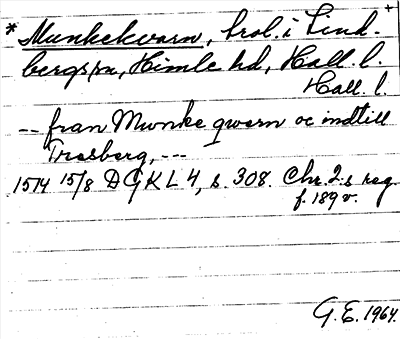 * Munkekvarn, trol. i Lind-
bergs sn, Himle hd, Hall. l.
Hall. l.
-- fran Munke qwern oc indtill
Trasberg, ---
1514 15/8 DGKL 4, s. 308. Chr. 2:s reg.
f. 189 v.
G. E. 1964.